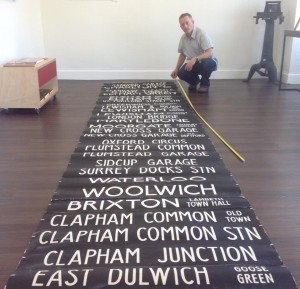 SURREY DOCKS
EAST DULWICH
ELTHAM
LEWISHAM
LEWISHAM
LONDON BRIDGE
MARYLEBONE
MOORGATE
NEW CROSS GARAGE
NEW CROSS GARAGE
OXFORD CIRCUS
PLUMSTEAD COMMON
PLUMSTEAD GARAGE
SIDCUP GARAGE
SURREY DOCKS STN
WATERLOO
WOOLWICH
BRIXTON LAMBETH TOWN HALL
CLAPHAM COMMON OLD TOWN
CLAPHAM COMMON STN
CLAPHAM JUNCTION
EAST DULWICH GOOSE GREEN